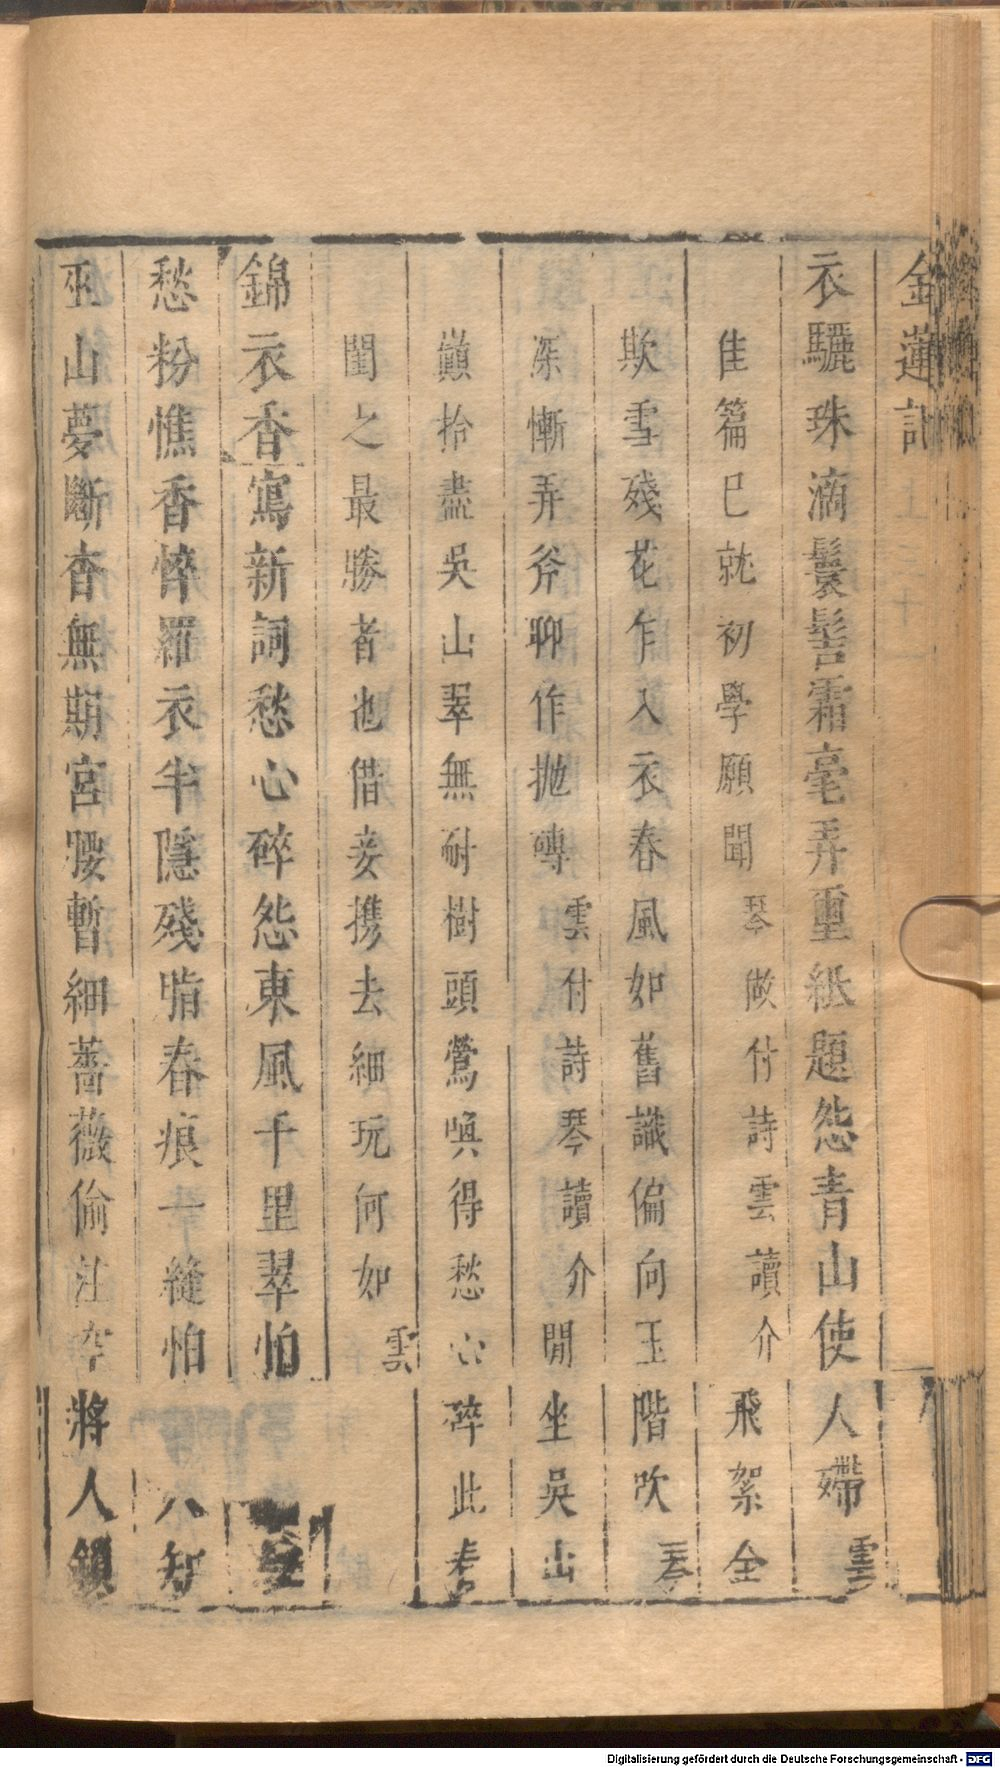 金蓮記
衣驪珠滴鬟髻霜毫弄重紙題怨青山使人嬌雲
佳篇已就初學願聞琴做付詩雲讀介飛絮全
欺雪殘花乍入衣春風如舊識偏向玉階吹琴
深慚弄斧聊作拋磚雲付詩琴讀介閒坐吳山
巔拾盡吳山翠無耐樹頭鶯喚得愁心碎此者
閨之最勝者也借妾携去細玩何如雲
錦衣香寫新詞愁心碎怨東風千里翠怕
愁粉憔香悴羅衣半隱殘脂春痕一縫怕人知
巫山夢斷杳無期宮腰暫細薔薇偷泣空將人鎖
Digitalisierung gefördert durch die Deutsche Forschungsgemeinschaft - DFG